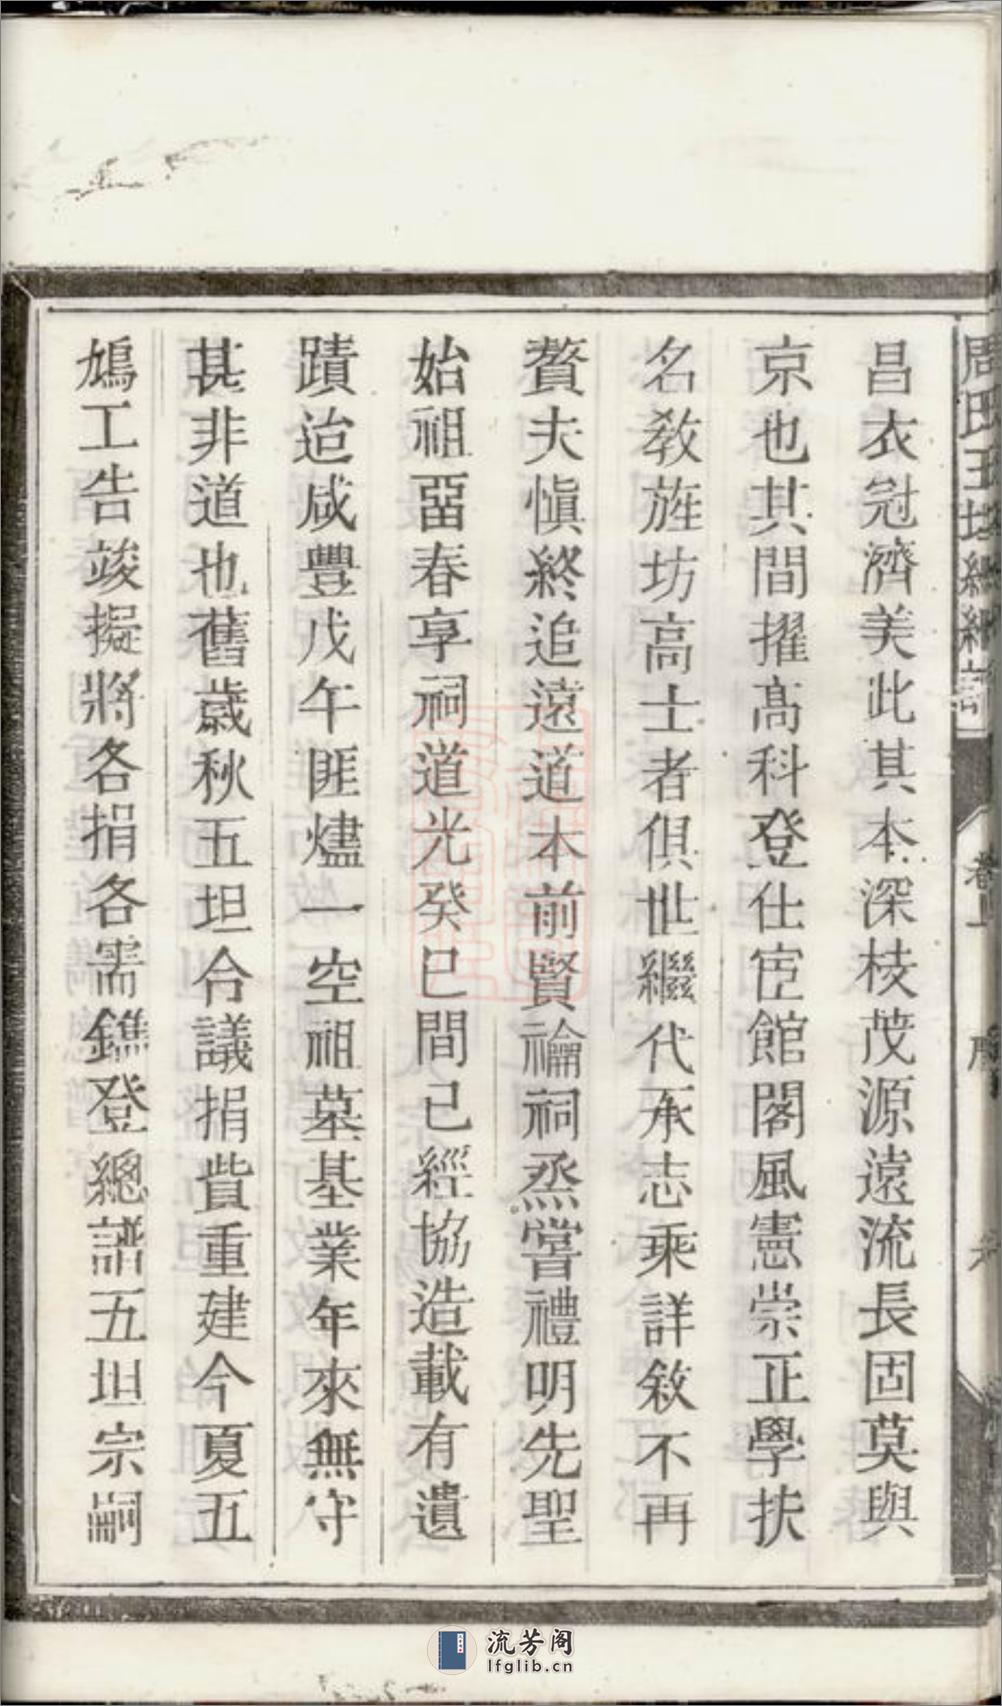 昌衣冠濟美此其本深枝茂源遠流長固莫與
京也其間擢髙科登仕宦館閣風憲崇正學扶
名教旌坊高士者俱世世繼代承志乘詳敘不再
贅夫慎終追遠道本前賢禴祠烝嘗禮明先聖
始祖畱春享祠道光癸巳間已經協造載有遺
蹟迨咸豐戊午匪燼一空祖墓基業年來無守
甚非道也舊歲秋五坦合議捐貲重建今夏五
鳩工告竣擬將各捐各需鐫登總譜五坦宗嗣
卷一
流芳阁
lfglib.cn